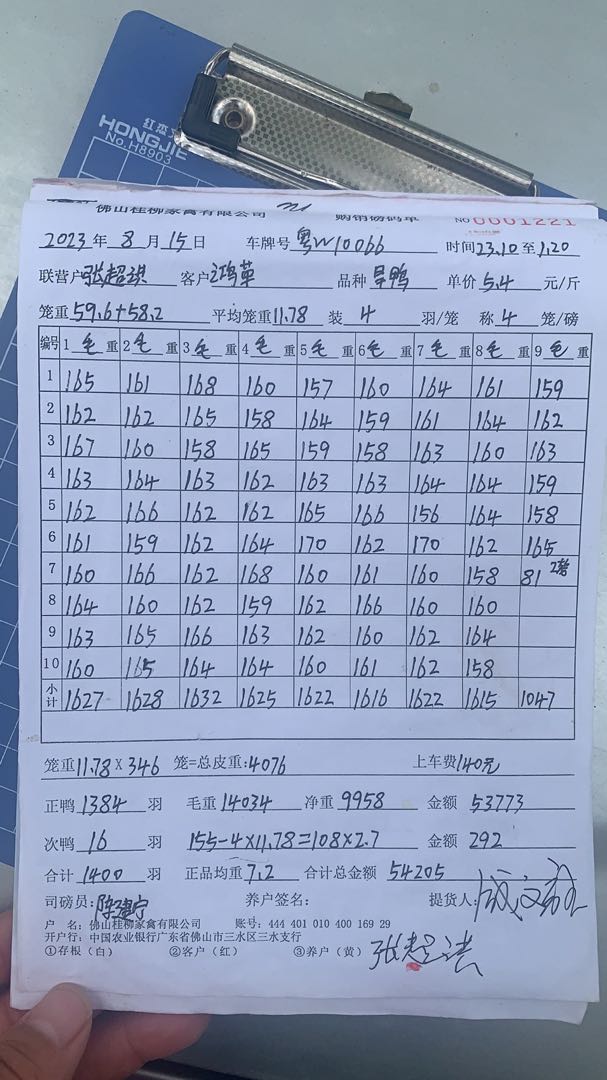 红杰
HONGJIE
No.H8903
佛山桂柳家禽有限公司 购销磅码单 NO 0001221
2023年8月15日 车牌号 粤W10066 时间23.10至1.20
联营户 张超琪 客户 鸿英 品种 旱鸭 单价 5.4 元/斤
笼重 59.6+58.2 平均笼重 11.78 装 4 羽/笼 称 4 笼/磅
编号 1 毛 重 2 毛 重 3 毛 重 4 毛 重 5 毛 重 6 毛 重 7 毛 重 8 毛 重 9 毛 重
1 165 161 168 160 157 160 164 161 159
2 162 162 165 158 164 159 161 164 162
3 167 160 158 165 159 158 163 160 163
4 163 164 163 162 163 163 164 164 159
5 162 166 162 162 165 166 156 164 158
6 161 159 162 164 170 162 170 162 165
7 160 166 162 168 160 161 160 158 81 2笼
8 164 160 162 159 162 166 160 160
9 163 165 166 163 162 160 162 164
10 160 165 164 164 160 161 162 158
小计 1627 1628 1632 1625 1622 1616 1622 1615 1047
笼重 11.78 X 346 笼=总皮重:4076 上车费 140元
正鸭 1384 羽 毛重 14034 净重 9958 金额 53773
次鸭 16 羽 155-4×11.78=108×2.7 金额 292
合计 1400 羽 正品均重 7.2 合计总金额 54205
司磅员: 养户签名: 提货人:
户 名: 佛山桂柳家禽有限公司 账号: 444 401 010 400 169 29
开户行: 中国农业银行广东省佛山市三水区三水支行
①存根（白） ②客户（红） ③养户（黄）